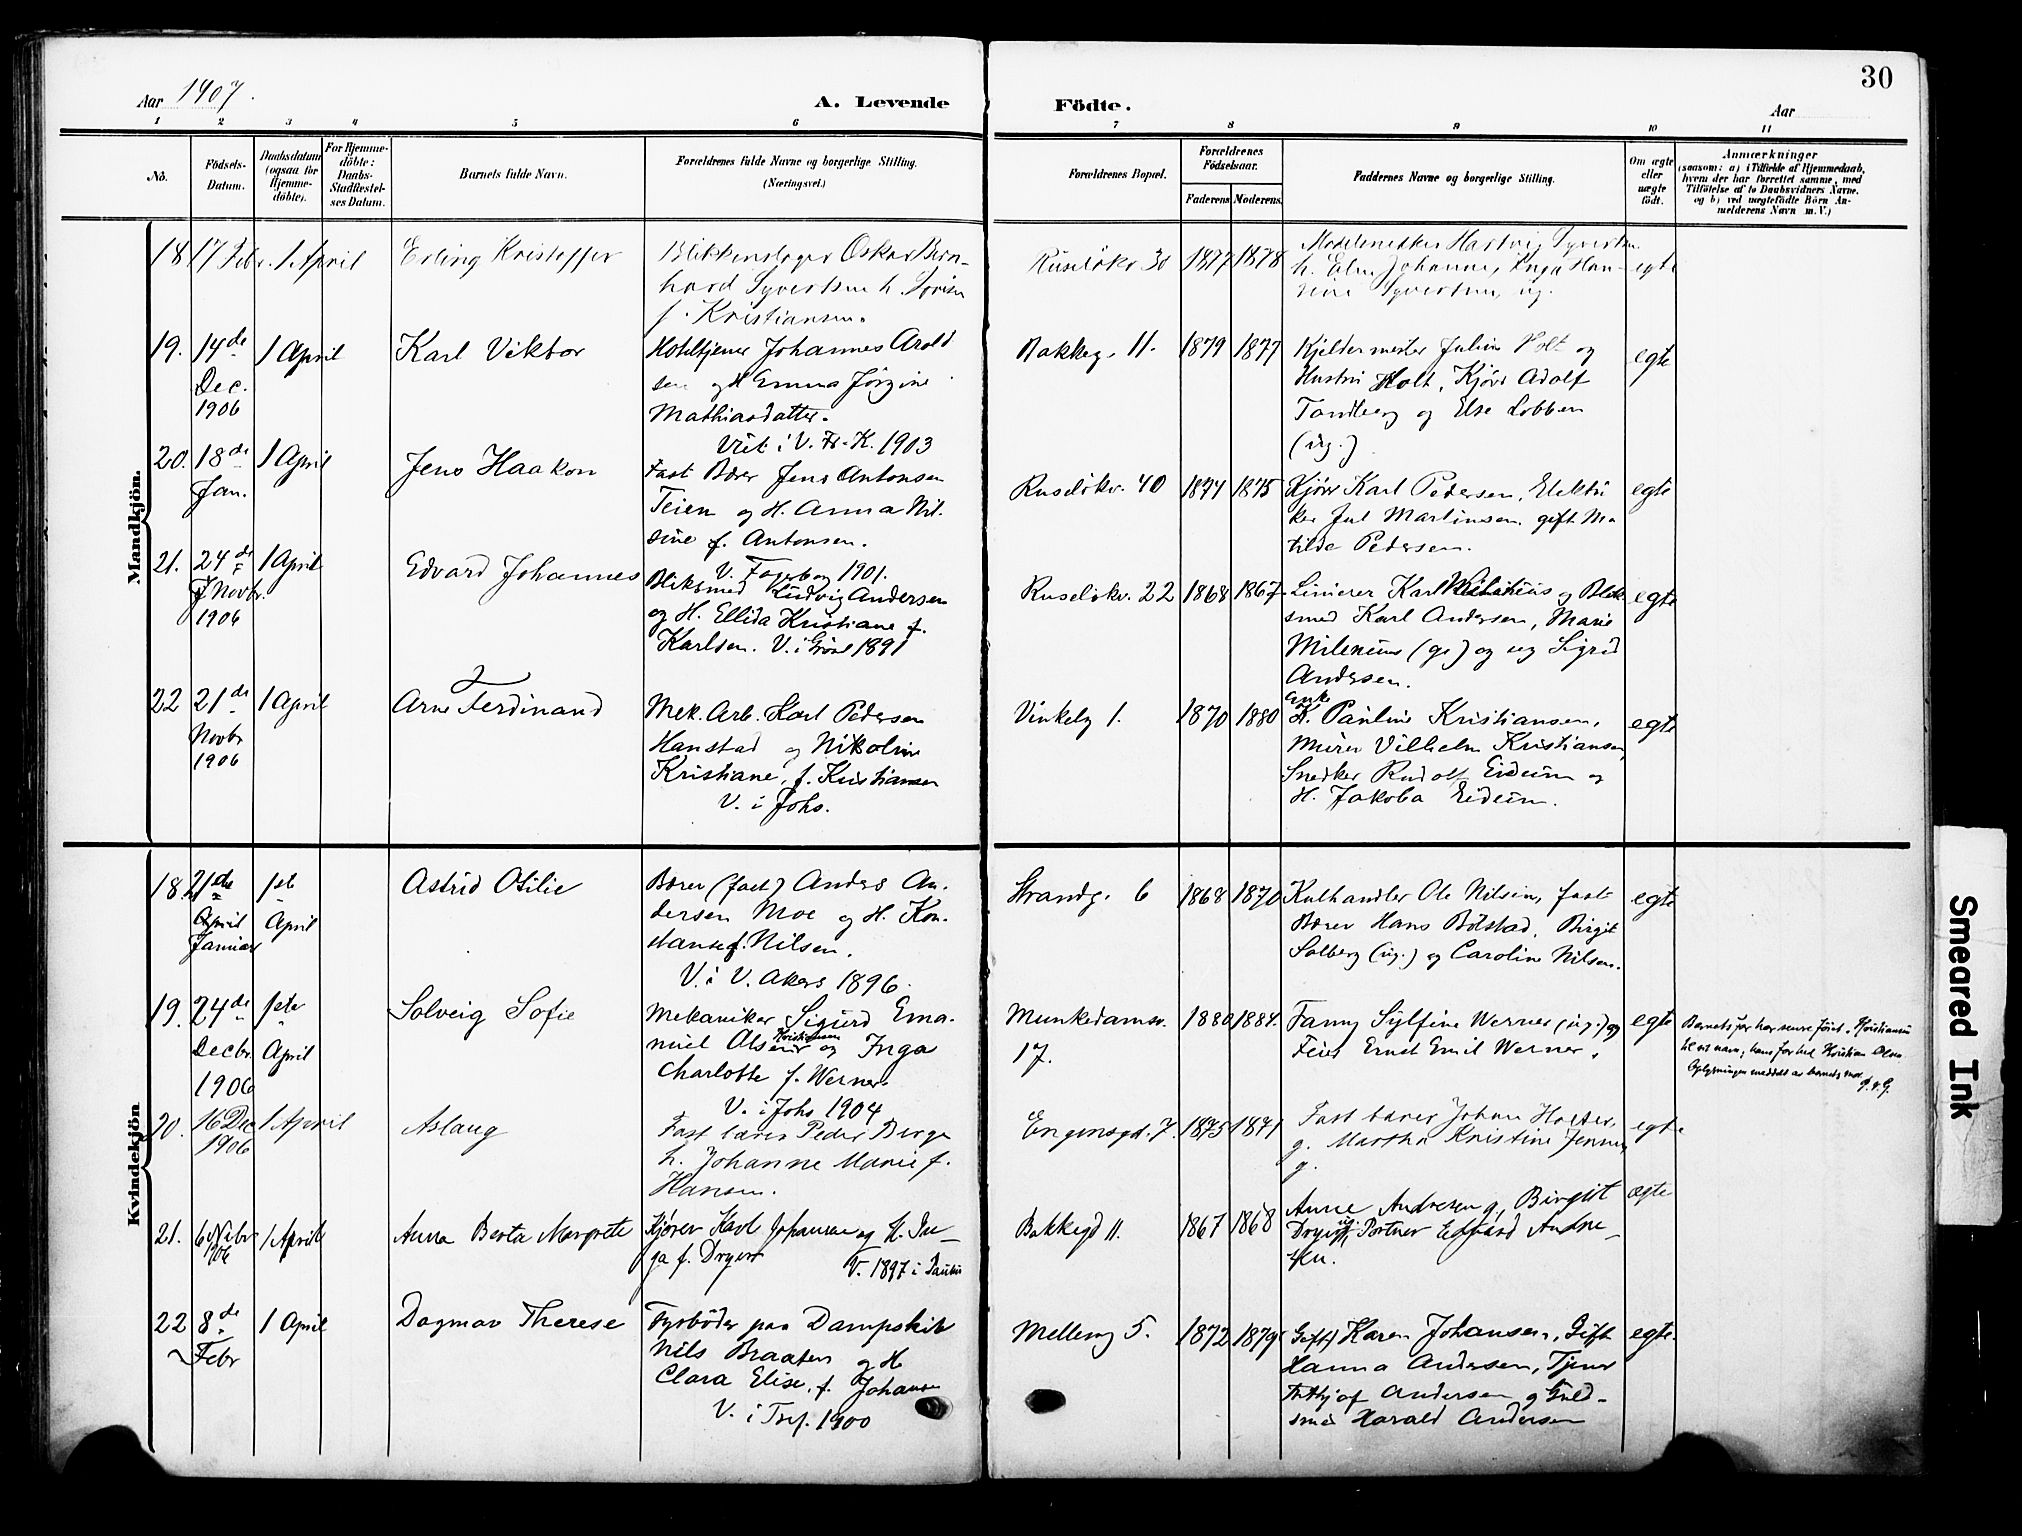 30
Aar 1907.
A. Levende Födte.
Aar
1 2 3 4 5 6 7 8 9 10 11
No.
Födsels-Datum.
Daabsdatum (ogsaa for Hjemme-döbte).
For Hjemme-döbte: Daabs-Stadfæstel-ses Datum.
Barnets fulde Navn.
Forældrenes fulde Navne og borgerlige Stilling.
(Næringsvei.)
Forældrenes Bopæl.
Forældrenes Födselsaar.
Faderens Moderens
Faddernes Navne og borgerlige Stilling.
Om ægte eller uægte födt.
Anmærkninger
(saasom: a) i Tilfælde af Hjemmedaab,
hvem der har forrettet samme, med
Tilföielse af to Daabsvidners Navne,
og b) ved uægtefödte Börn An-
melderens Navn m. V.)
Mandkjön.
18 17 Febr. 1 April Erling Kristoffer
Blikkenslager Oskar Bern-
hard Syvertsen h.
f. Kristiansen.
Ruseløkv 30 1877 1878
Hartvig Syvertsen
h. Johanne, Inga Han-
sine Syvertsen, ug.
egte
19. 14de Dec. 1906 1 April Karl Viktor
Hoteltjener Johannes Arold
sen og H Emma Jørgine
Mathiasdatter.
Viet i V. Fr. K. 1903
Bakkeg. 11. 1879 1877
Kjeldermester Julius Holt og
Hustru Holt, Kjører Adolf
Tandberg og Else Lobben
(ug.)
egte
20. 18de Jan. 1 April Jens Haakon
Fast Bærer Jens Antonsen
Teien og H. Anna Nil-
sine f. Antonsen.
V. Fagerborg 1901.
Ruseløkv. 40 1874 1875
Kjører Karl Pedersen, Elektri
ker Jul Martinsen, gift Ma
tilde Pedersen.
egte
21. 24de Novbr. 1906 1 April Edvard Johannes
Bliksmed Ludvig Andersen
og H. Ellida Kristiane f.
Karlsen. V. i Grønl 1891
Ruseløkv. 22 1868 1867
Linierer Karl og Blik
smed Karl Andersen, Marie
Milenius (g.) og ug Sigrid
Andersen.
egte
22 21de Novbr 1906 1 April Arne Ferdinand
Mek. Arb. Karl Pedersen
Hanstad og Nikoline
Kristiane, f. Kristiansen
V. i Johs.
Vinkelg 1. 1870 1880
Enke
H. Pauline Kristiansen,
Murer Vilhelm Kristiansen,
Snedker Rudolf Eideim og
H. Jakoba Eideim.
egte
Kvindekjön
18. 21de April Januar 1ste April Astrid Otilie
Bærer (fast) Anders An-
dersen Moe og H. Kon-
stanse f. Nilsen.
V. i V. Akers 1896.
Strandg. 6 1868 1870
Kulhandler Ole Nilsen, fast
Bærer Hans Bolstad, Birgit
Solberg (ug.) og Caroline Nilsen.
egte
19. 24de Decbr 1906 1ste April Solveig Sofie
Mekaniker Sigurd Ema-
nuel Olsen Kristiansen og Inga
Charlotte f. Werner.
V. i Johs 1904
Munkedamsv. 17. 1880 1884.
Fanny Sylfine Werner (ug.) og
Feier Ernst Emil Werner.
egte
Barnets far har senere ført Kristiansen
til sit navn; hans far hed Kristian Olsen
Oplysningen meddelt av barnets mor.
20. 16 Dec 1906 1 April Aslaug
Fast bærer Peder Berge
h. Johanne Marie f.
Hansen.
Engensgd. 7. 1875 1871
Fast bærer Johan
g. Martha Kristine
g.
egte
21. 6 Nvbr 1906 1 April Anna Berta Margrete
Kjører Karl Johansen og H. In-
ga f. Dryer
V. 1897 i Paulus
Bakkegd 11. 1867 1868
Anne Andresen g, Birgit
Dryer ug, Portner Edvard Andre-
sen.
ægte
22 8de Febr 1 April Dagmar Therese
Fyrbøder paa Dampskib
Nils Braaten og H
Clara Elise, f. Johansen
V. i Tref. 1900
Mellemg 5. 1872 1879
Gift) Karen Johansen, Gift
Hanna Andersen, Tjener
Frithjof Andersen og Guld-
smed Harald Andersen
egte.
Smeared Ink